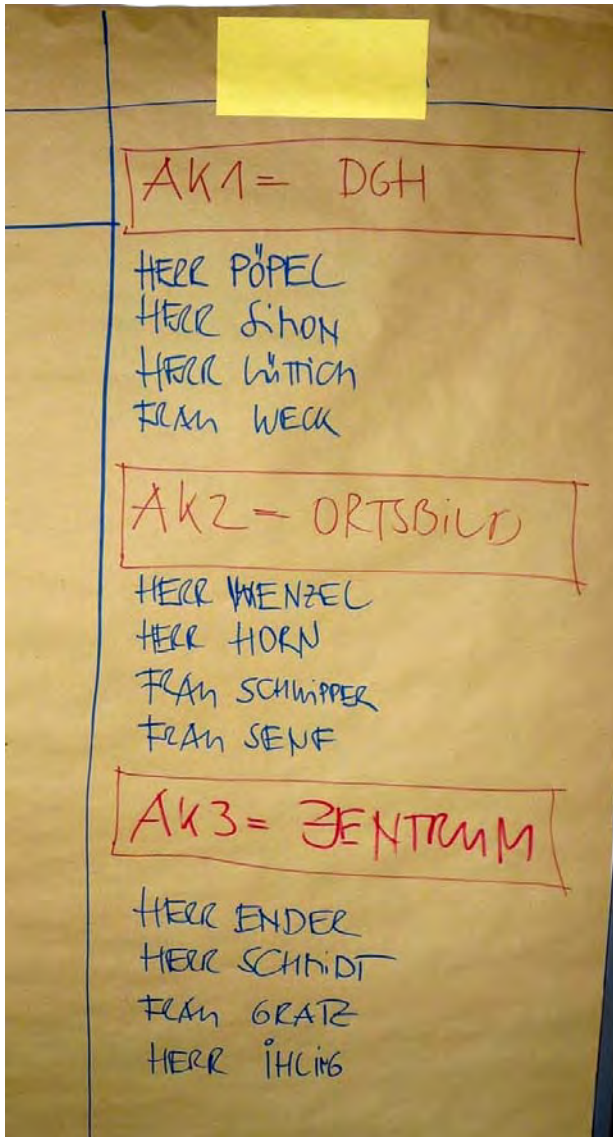 AK1= DGH
HERR PÖPEL
HERR SiMON
HERR LüTTiCH
FRAU WECK
AK2= ORTSBiLD
HERR WENZEL
HERR HORN
FRAU SCHLiPPER
FRAU SENF
AK3= ZENTRUM
HERR ENDER
HERR SCHMiDT
FRAU GRATZ
HERR iHLiNG